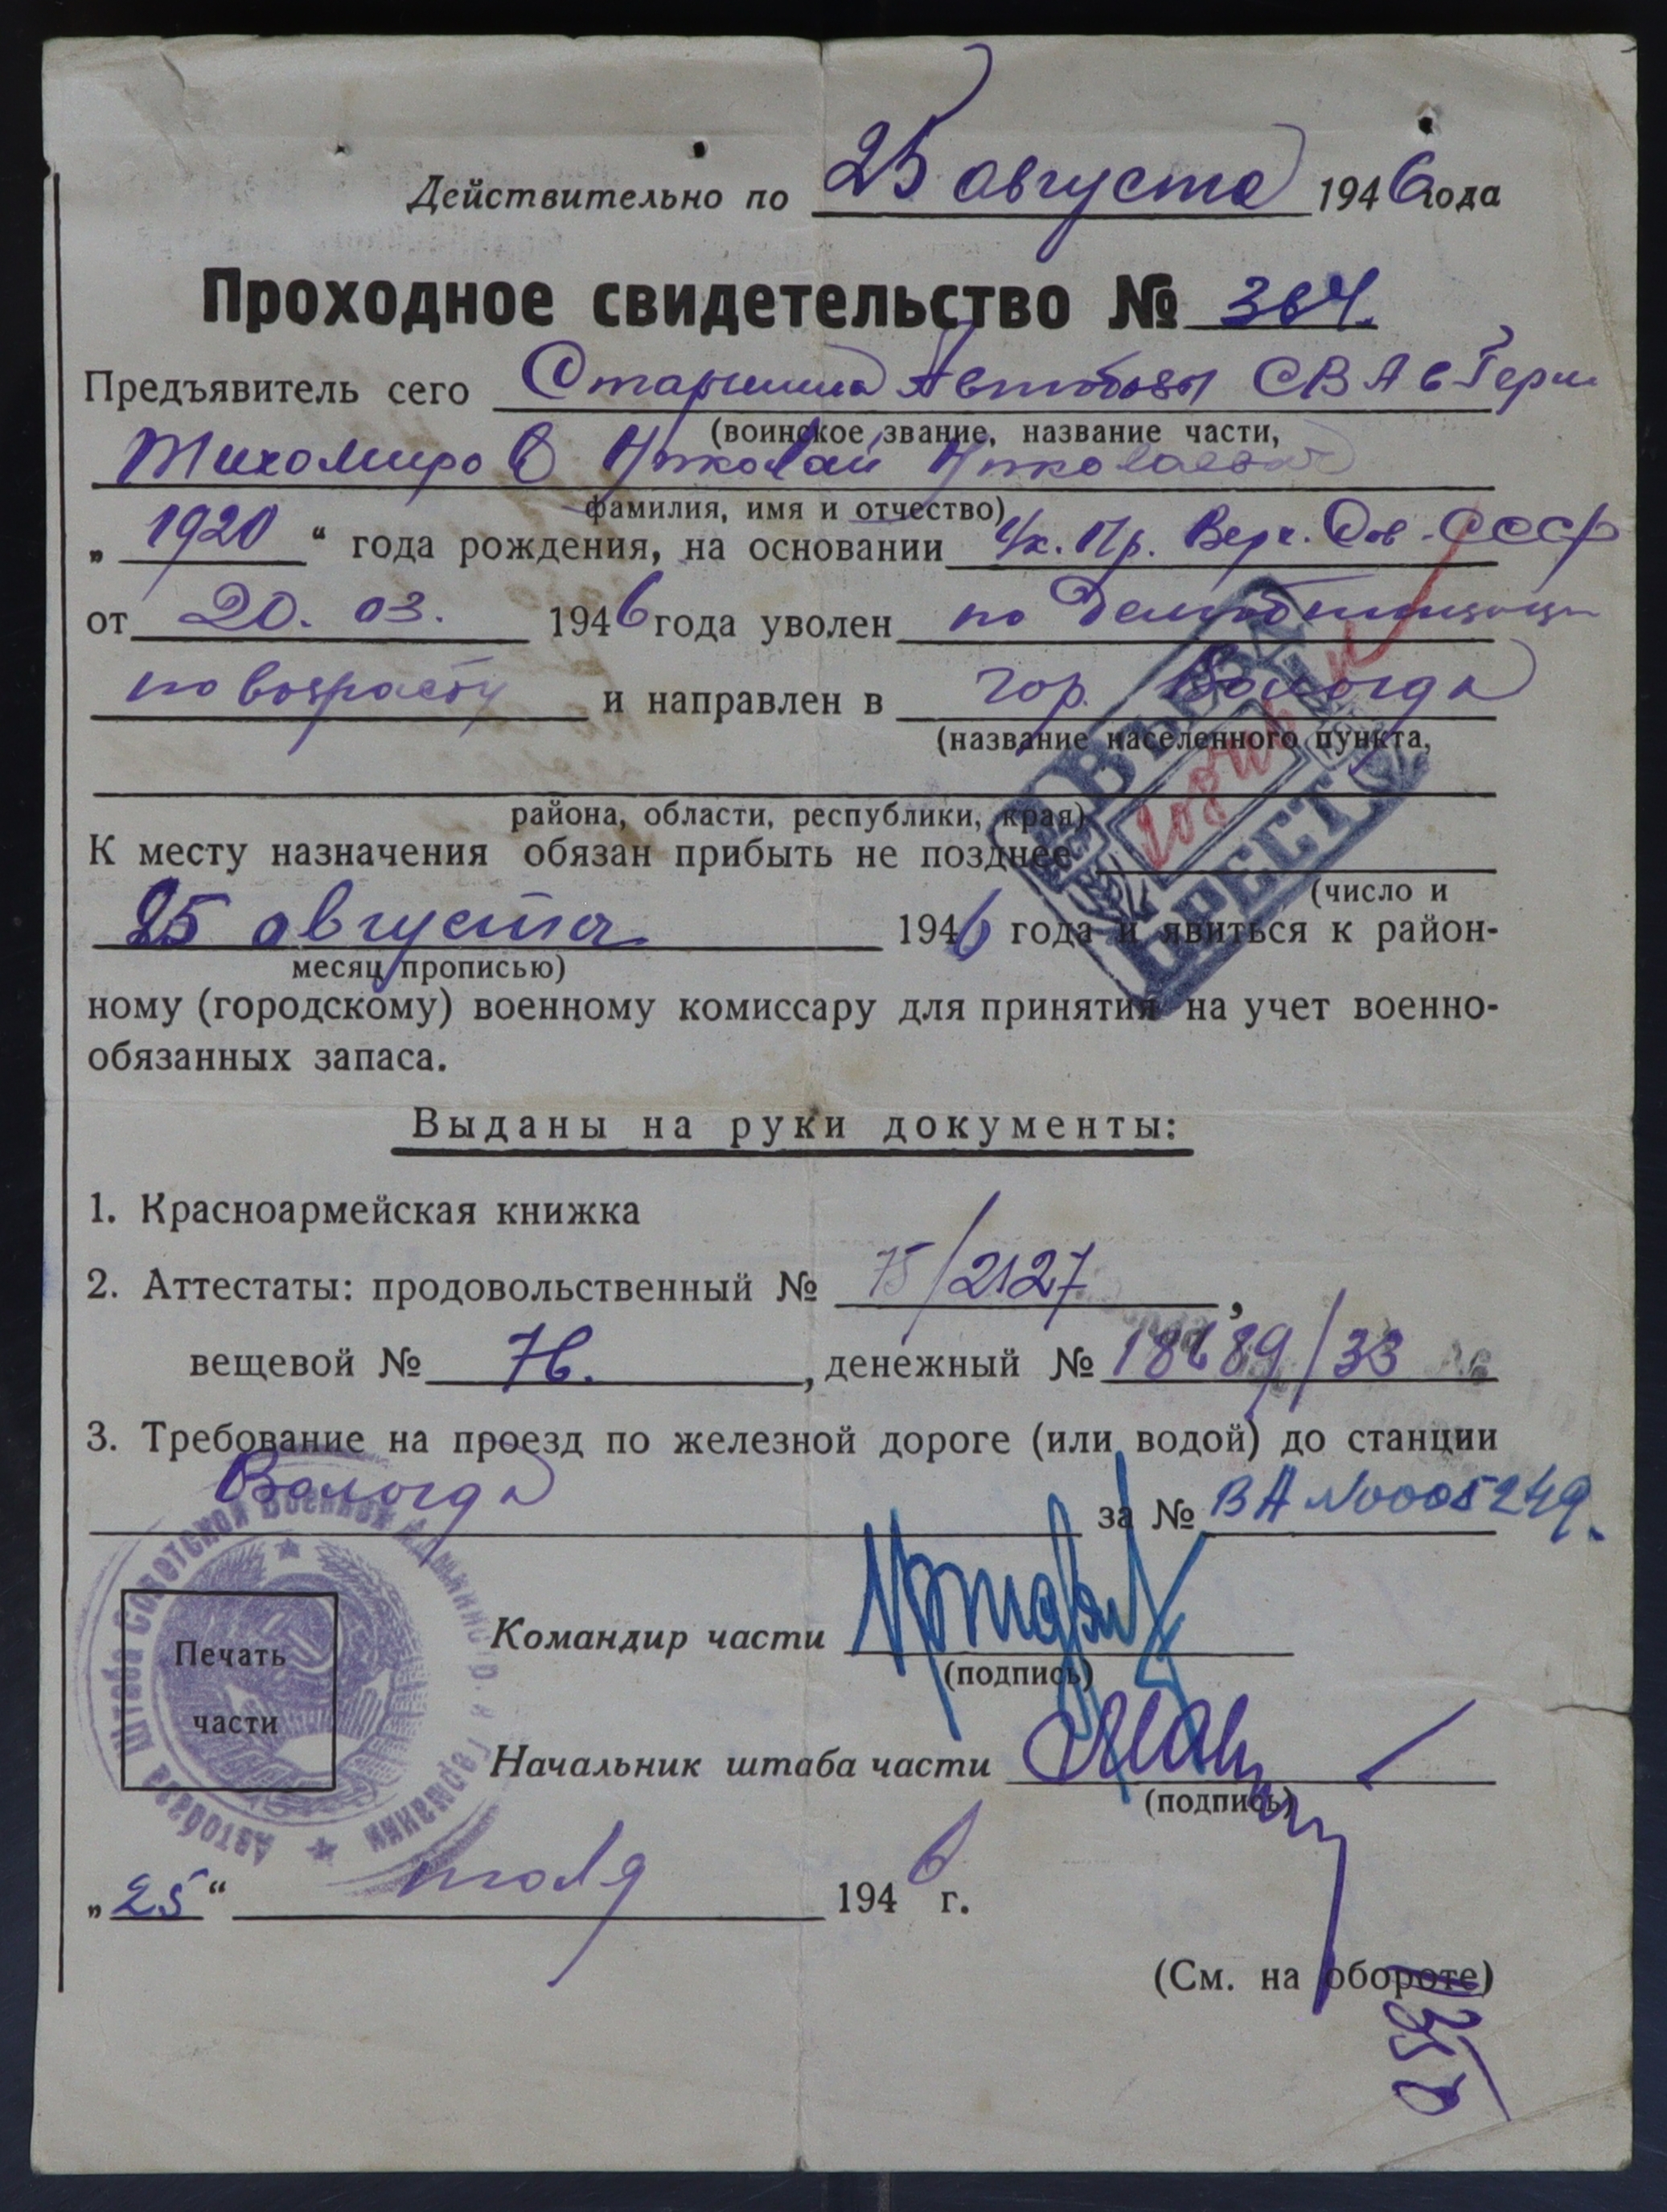 Действительно по 25 августа 1946 года
Проходное свидетельство № 364.
Предъявитель сего Старшина Автобазы СВА в Герм
(воинское звание, название части,
Тихомиров Николай Николаевич
фамилия, имя и отчество)
„ 1920 “ года рождения, на основании Ук. Пр. Верх. Сов. СССР
от 20. 03. 1946 года уволен по демобилизации
по возрасту и направлен в гор. Вологда
(название населенного пункта,
района, области, республики, края)
К месту назначения обязан прибыть не позднее
(число и
25 августа 1946 года и явиться к район-
месяц прописью)
ному (городскому) военному комиссару для принятия на учет военно-
обязанных запаса.
Выданы на руки документы:
1. Красноармейская книжка
2. Аттестаты: продовольственный № 75/2127,
вещевой № 76., денежный № 18689/33
3. Требование на проезд по железной дороге (или водой) до станции
Вологда за № ВА №0005249.
Автобаза Штаба Советской Военной Администр. в Германии
Печать
части
Командир части
(подпись)
Начальник штаба части
(подпись)
„25“ июля 1946 г.
(См. на обороте)
БРЕСТ